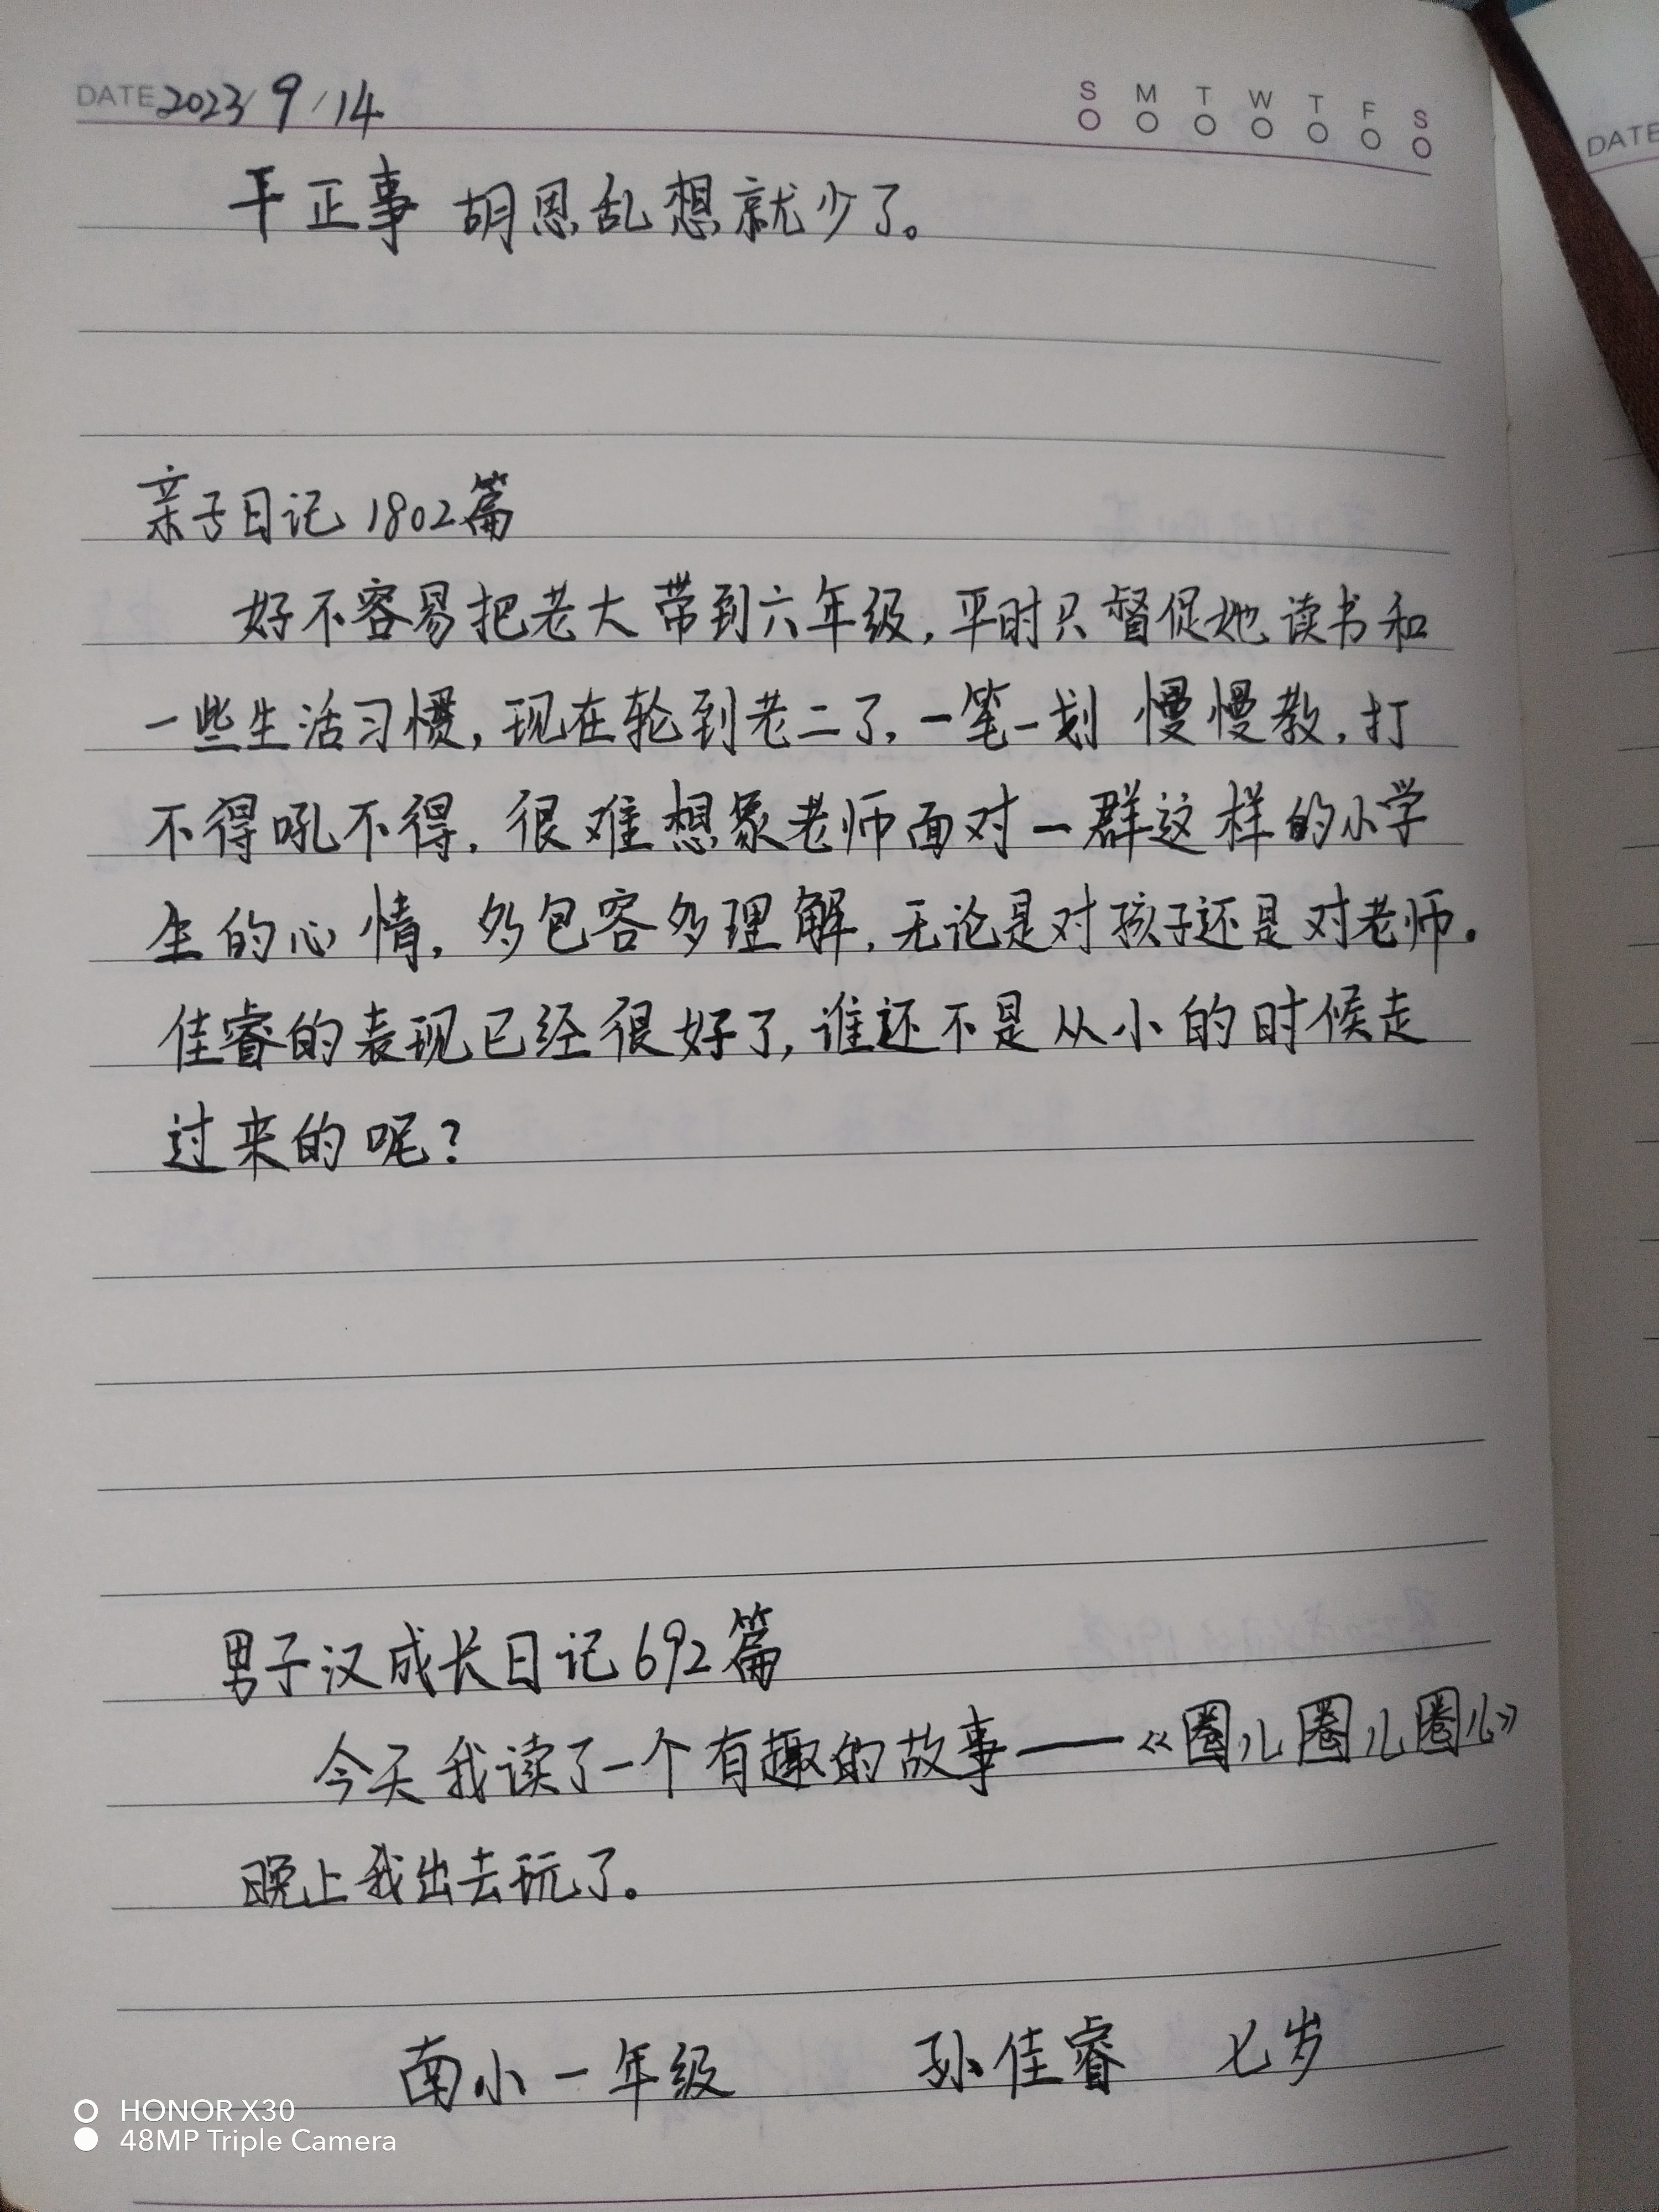 DATE 2023/9/14
S M T W T F S
DATE
干正事 胡思乱想就少了。
亲子日记1802篇
好不容易把老大带到六年级,平时只督促她读书和
一些生活习惯,现在轮到老二了,一笔一划 慢慢教,打
不得吼不得.很难想象老师面对一群这样的小学
生的心情,多包容多理解,无论是对孩子还是对老师.
佳睿的表现已经很好了,谁还不是从小的时候走
过来的呢?
男子汉成长日记692篇
今天我读了一个有趣的故事——《圈儿圈儿圈儿》
晚上我出去玩了。
南小一年级 孙佳睿 七岁
HONOR X30
48MP Triple Camera